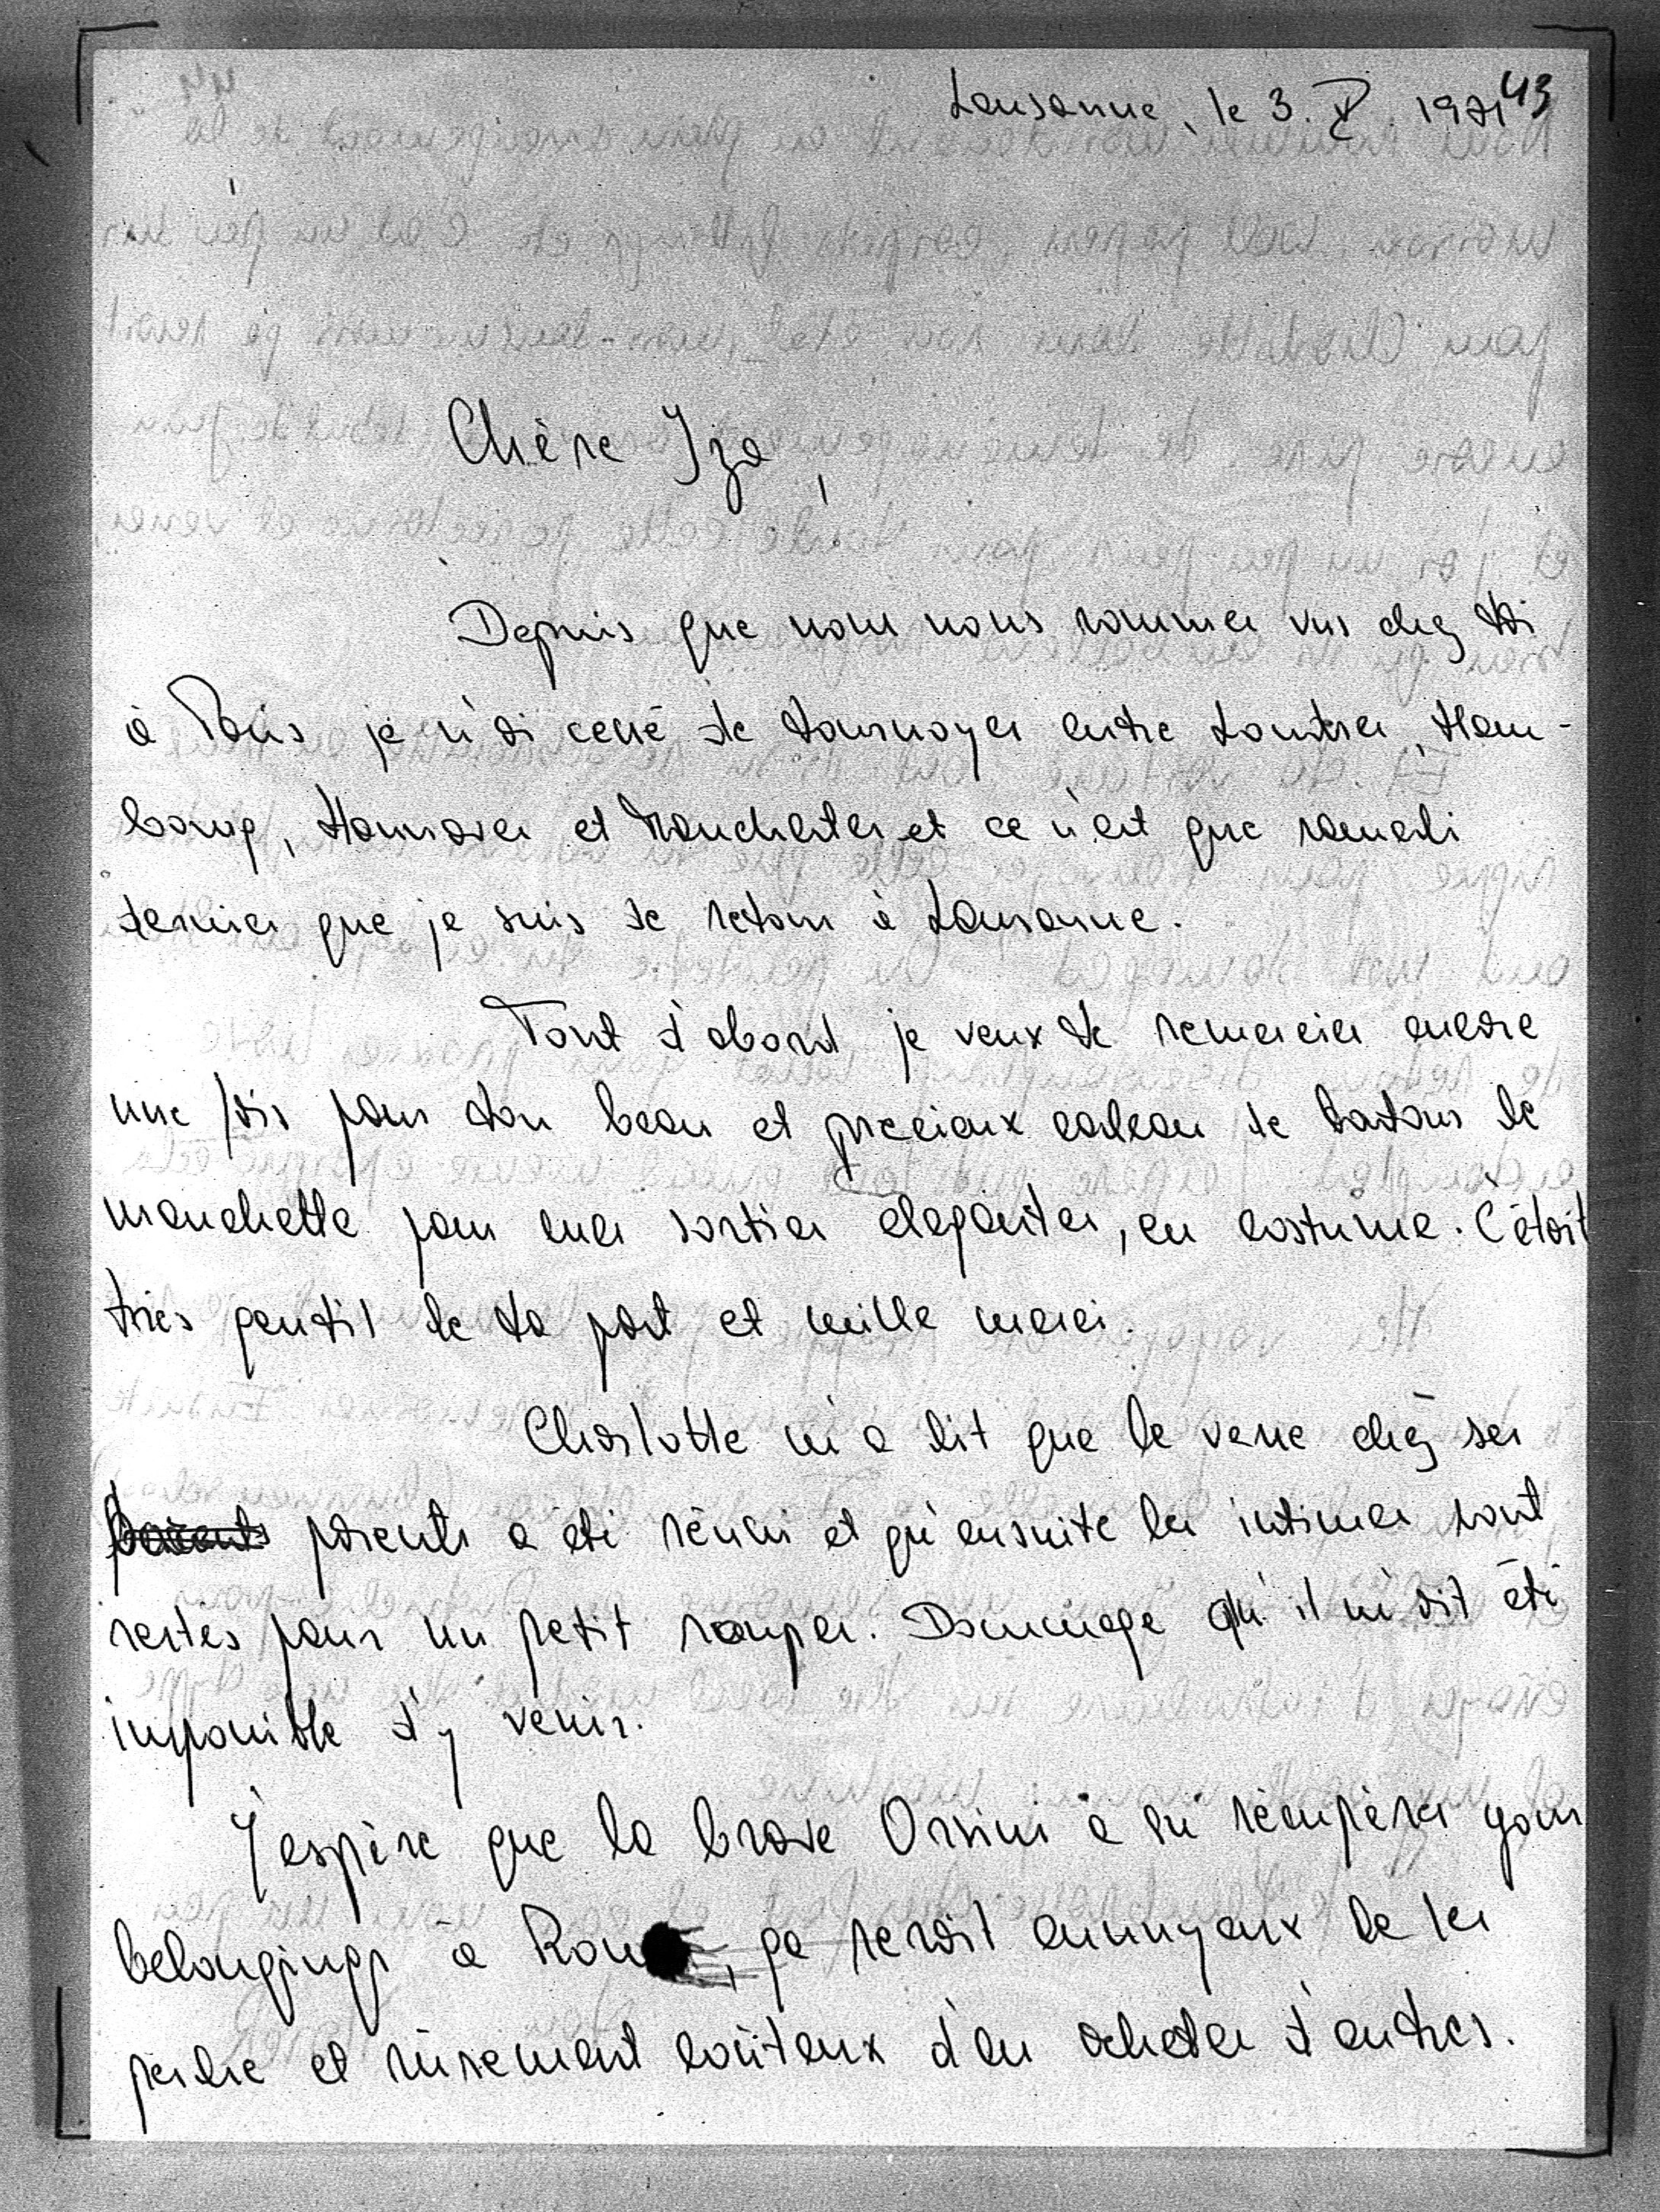 43
Lausanne, le 3. V. 1971
Chère Iza,
Depuis que nous nous sommes vus chez toi
à Paris je n'ai cessé de tournoyer entre Londres, Ham-
bourg, Hannover et Manchester et ce n'est que samedi
dernier que je suis de retour à Lausanne.
Tout d'abord je veux te remercier encore
une fois pour ton beau et precieux cadeau de boutons de
manchette pour mes sorties elegantes, en costume. C'était
très gentil de ta part et mille merci.
Charlotte m'a dit que le verre chez ses
parents a été réussi et qu'ensuite les intimes sont
restés pour un petit souper. Dommage qu'il m'ait été
impossible d'y venir.
J'espère que la brave Orsini a su récupérer your
belongings à Rome, ça serait ennuyeux de les
perdre et sûrement coûteux d'en acheter d'autres.